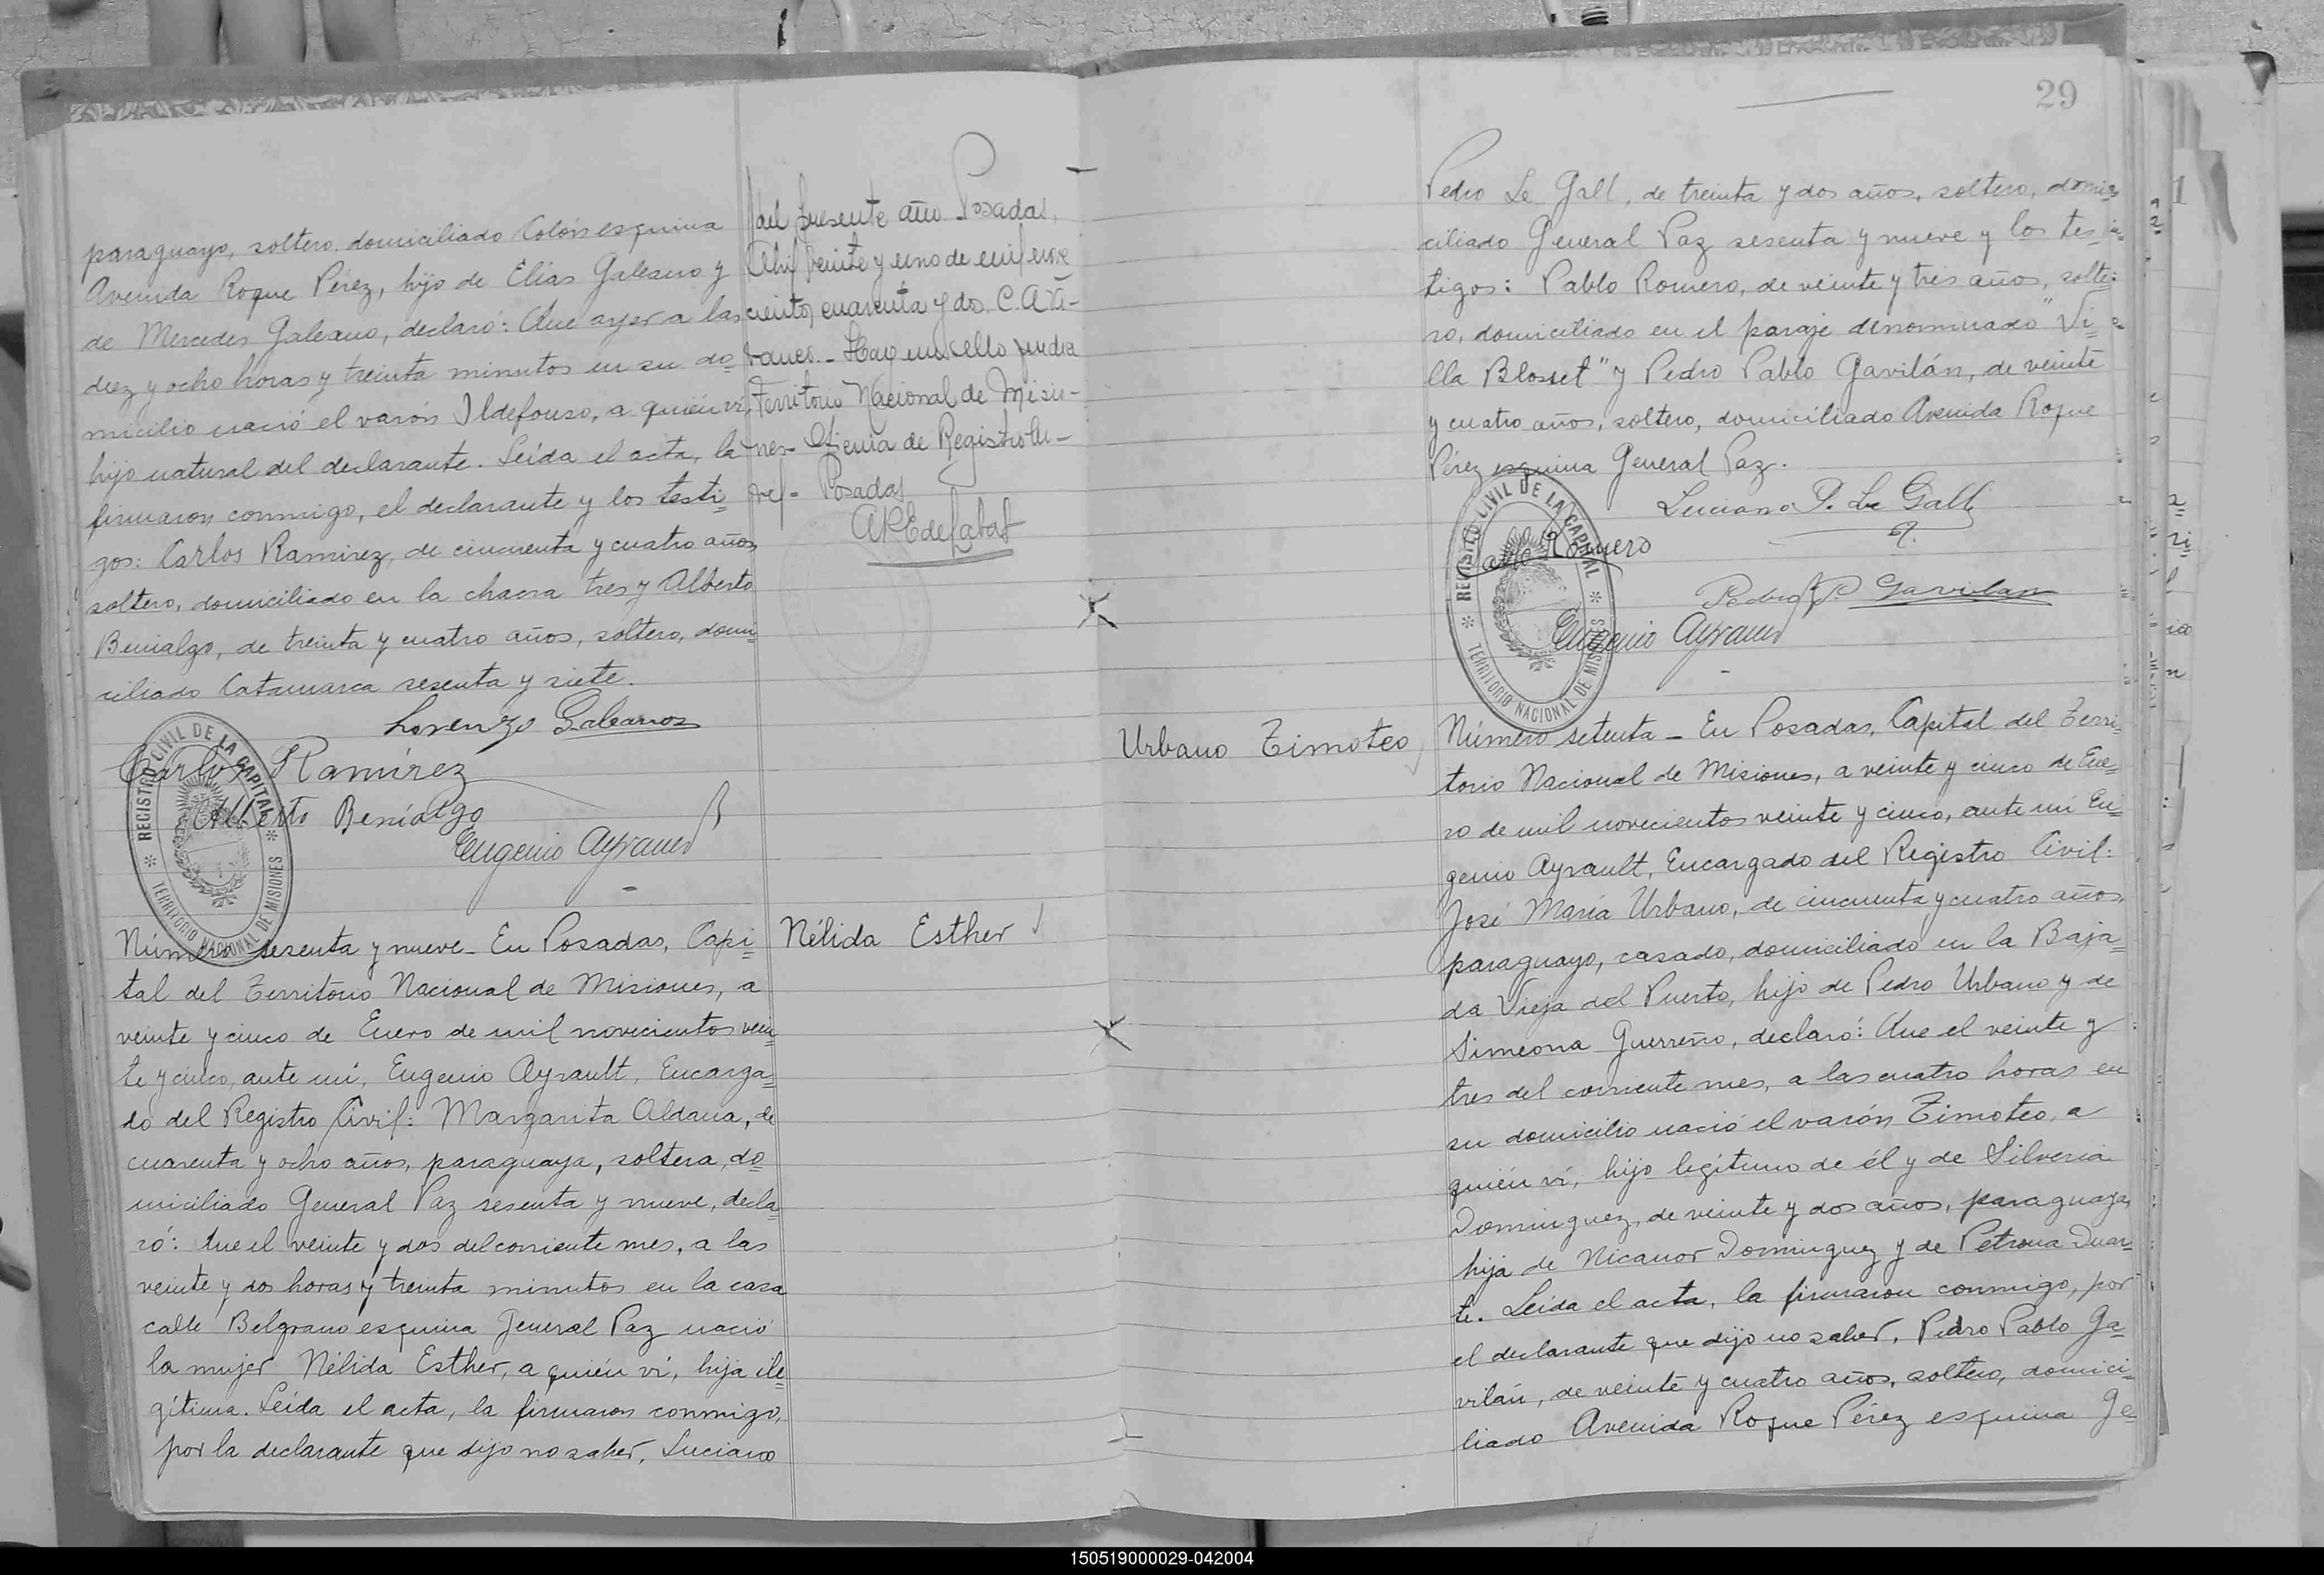 paraguayo, soltero, domiciliado Colón esquina
Avenida Roque Pérez, hijo de Elías Galeano y
de Mercedes Galeano, declaró: Que ayer a las
diez y ocho horas y treinta minutos en su do=
micilio nació el varón Ildefonso, a quién ví,
hijo natural del declarante. Leída el acta, la
firmaron conmigo, el declarante y los testi=
gos: Carlos Ramirez, de cincuenta y cuatro años,
soltero, domiciliado en la chacra tres y Alberto
Benialgo, de treinta y cuatro años, soltero, domi=
ciliado Catamarca sesenta y siete.
Lorenzo Galeano
Carlos Ramírez
Alberto Beniálgo
Eugenio Ayrault
REGISTRO CIVIL DE LA CAPITAL
* TERRITORIO NACIONAL DE MISIONES *
Número sesenta y nueve - En Posadas, Capi=
tal del Territorio Nacional de Misiones, a
veinte y cinco de Enero de mil novecientos vein=
te y cinco, ante mí, Eugenio Ayrault, Encarga=
do del Registro Civil: Margarita Aldana, de
cuarenta y ocho años, paraguaya, soltera, do=
miciliado General Paz sesenta y nueve, decla=
ró: Que el veinte y dos del corriente mes, a las
veinte y dos horas y treinta minutos en la casa
calle Belgrano esquina General Paz nació
la mujer Nélida Esther, a quién ví, hija ile=
gítima. Leída el acta, la firmaron conmigo,
por la declarante que dijo no saber, Luciano
del presente año. Posadas,
Abril veinte y uno de mil nove
cientos cuarenta y dos. C. A.
Hay un sello
Territorio Nacional de Misio-
nes - Oficina de Registro Ci-
vil - Posadas
Nélida Esther
29
Pedro Le Gall, de treinta y dos años, soltero, domi=
ciliado General Paz sesenta y nueve y los tes=
tigos: Pablo Romero, de veinte y tres años, solte=
ro, domiciliado en el paraje denominado "Vi=
lla Blosset" y Pedro Pablo Gavilán, de veinte
y cuatro años, soltero, domiciliado Avenida Roque
Pérez esquina General Paz.
Luciano P. Le Gall
Pablo Romero
Pedro P. Gavilan
Eugenio Ayrault
REGISTRO CIVIL DE LA CAPITAL
* TERRITORIO NACIONAL DE MISIONES *
Urbano Timoteo
Número setenta - En Posadas, Capital del Terri=
torio Nacional de Misiones, a veinte y cinco de Ene=
ro de mil novecientos veinte y cinco, ante mí Eu=
genio Ayrault, Encargado del Registro Civil:
José María Urbano, de cincuenta y cuatro años,
paraguayo, casado, domiciliado en la Baja=
da Vieja del Puerto, hijo de Pedro Urbano y de
Simeona Guerreño, declaró: Que el veinte y
tres del corriente mes, a las cuatro horas en
su domicilio nació el varón Timoteo, a
quién ví, hijo legítimo de él y de Silveria
Dominguez, de veinte y dos años, paraguaya,
hija de Nicanor Dominguez y de Petrona Duar=
te. Leída el acta, la firmaron conmigo, por
el declarante que dijo no saber, Pedro Pablo Ga=
vilán, de veinte y cuatro años, soltero, domici=
liado Avenida Roque Pérez esquina Ge=
150519000029-042004